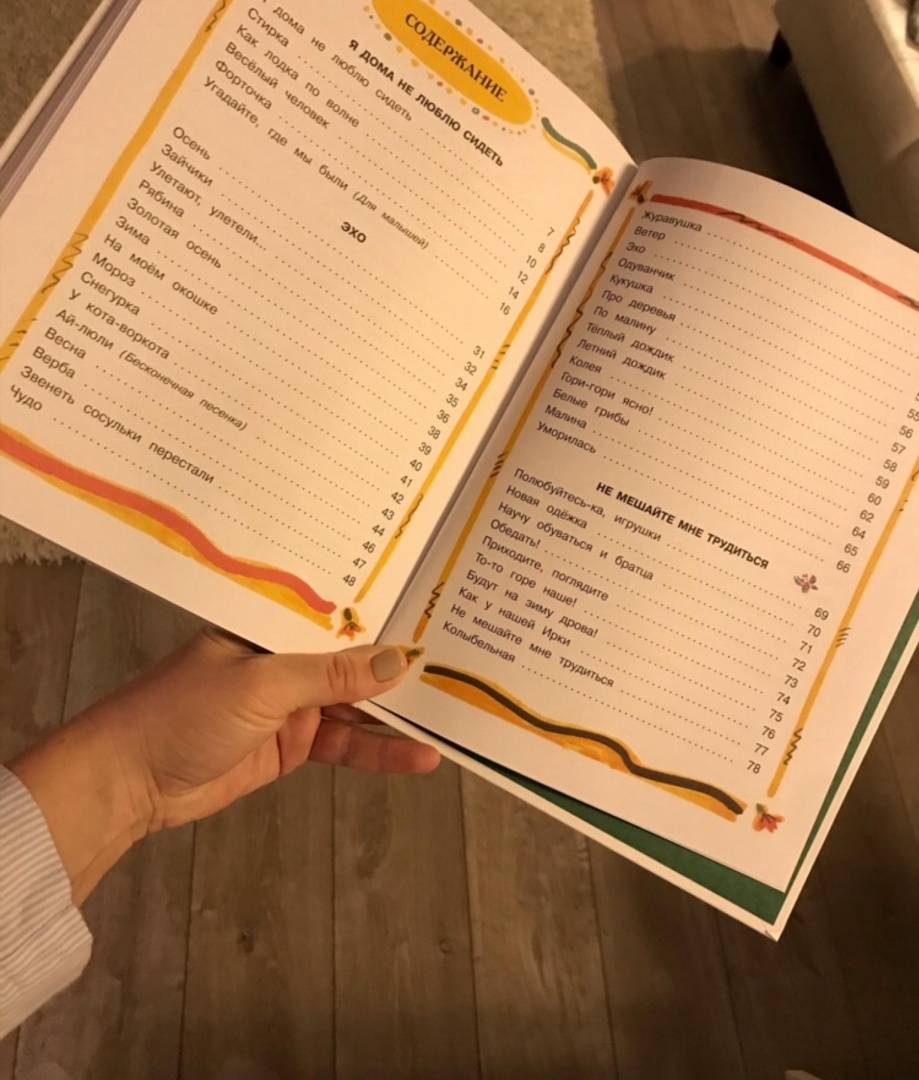 СОДЕРЖАНИЕ
Я ДОМА НЕ ЛЮБЛЮ СИДЕТЬ
дома не люблю сидеть 7
Стирка 8
Как лодка по волне 10
Весёлый человек 12
Форточка 14
Угадайте, где мы были (Для малышей) 16
ЭХО
Осень 31
Зайчики 32
Улетают, улетели... 34
Рябина 35
Золотая осень 36
Зима 38
На моём окошке 39
Мороз 40
Снегурка 41
У кота-воркота 42
Ай-люли (Бесконечная песенка) 43
Весна 44
Верба 46
Звенеть сосульки перестали 47
Чудо 48
Журавушка
Ветер
Эхо
Одуванчик
Кукушка 55
Про деревья 56
По малину 57
Тёплый дождик 58
Летний дождик 59
Колея 60
Гори-гори ясно! 62
Белые грибы 64
Малина 65
Уморилась 66
НЕ МЕШАЙТЕ МНЕ ТРУДИТЬСЯ
Полюбуйтесь-ка, игрушки 69
Новая одёжка 70
Научу обуваться и братца 71
Обедать! 72
Приходите, поглядите 73
То-то горе наше! 74
Будут на зиму дрова! 75
Как у нашей Ирки 76
Не мешайте мне трудиться 77
Колыбельная 78